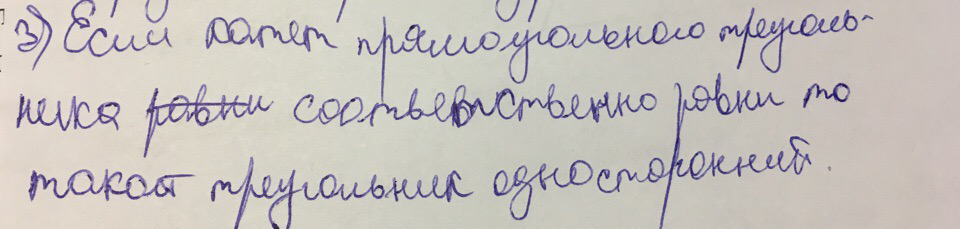 3) Если катет прямоугольного треуголь-
ника ровни соответственно ровни то
такой треугольник односторонний.